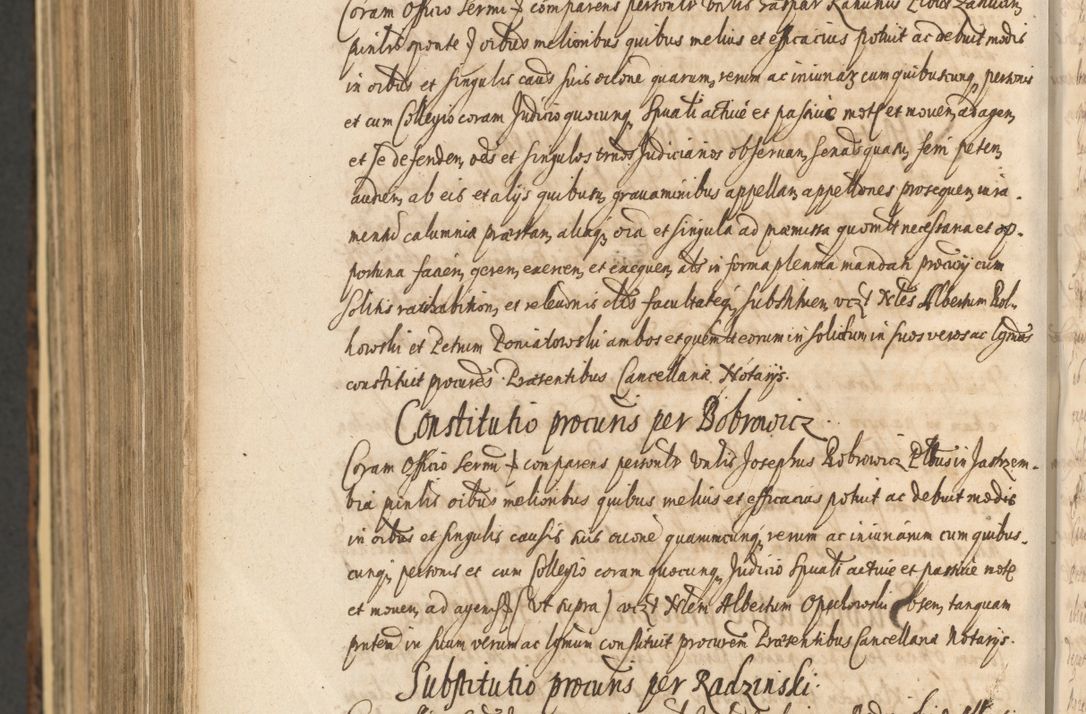 Coram Officio Sermi ? comparens personlr Vnlis Gaspar
pintis sponte ? oibus melioribus quibus melius et efficacius potuit ac debuit modis
in oibus et singulis causis suis oione quarum, rerum ac iniuriaz cum quibuscunq, personis
et cum Collegio coram Judicio quocunq, Spuali actiue et passiue mote et mouen, ad agen,
et se defenden, oes et singulos tmos Judiciarios obseruan, senas quasu, ferri peten,
audien, ab eis et alijs quibusu, grauaminibus appellan, appellones prosequen, iura-
menti calumnia præstan, aliaq, oia et singula ad præmissa quomlt necessaria et op-
portuna facien, geren, exercen, et exequen, als in forma plenma mandati procurij cum
solitis ratihabition, et releuonis clis facultateq, substituen, vczt Nles Albertum Bol-
howski et Petrum Poniatowski ambos et quemlt eorum in solidum in suos veros ac lgmos
constituit procures Præsentibus Cancellaria Notarijs.
Constitutio procuris per Bobrowicz
Coram Officio Sermi ? comparens personlr Vnlis Josephus Bobrowicz Plbus in Jastrzem-
bia pintis oibus melioribus quibus melius et efficacius potuit ac debuit modis
in oibus et singulis causis suis oione quarumcunq, rerum ac iniuriarum cum quibus-
cunq, personis et cum Collegio coram quocunq, Judicio Spuali actiue et passiue mote
et mouen, ad agen ? (vt supra) vczt Nlem Albertum Opselowski absen, tanquam
pntem in suum verum ac lgmum constituit procurem Præsentibus Cancellaria Notarijs.
Substitutio procuris per Radzinski